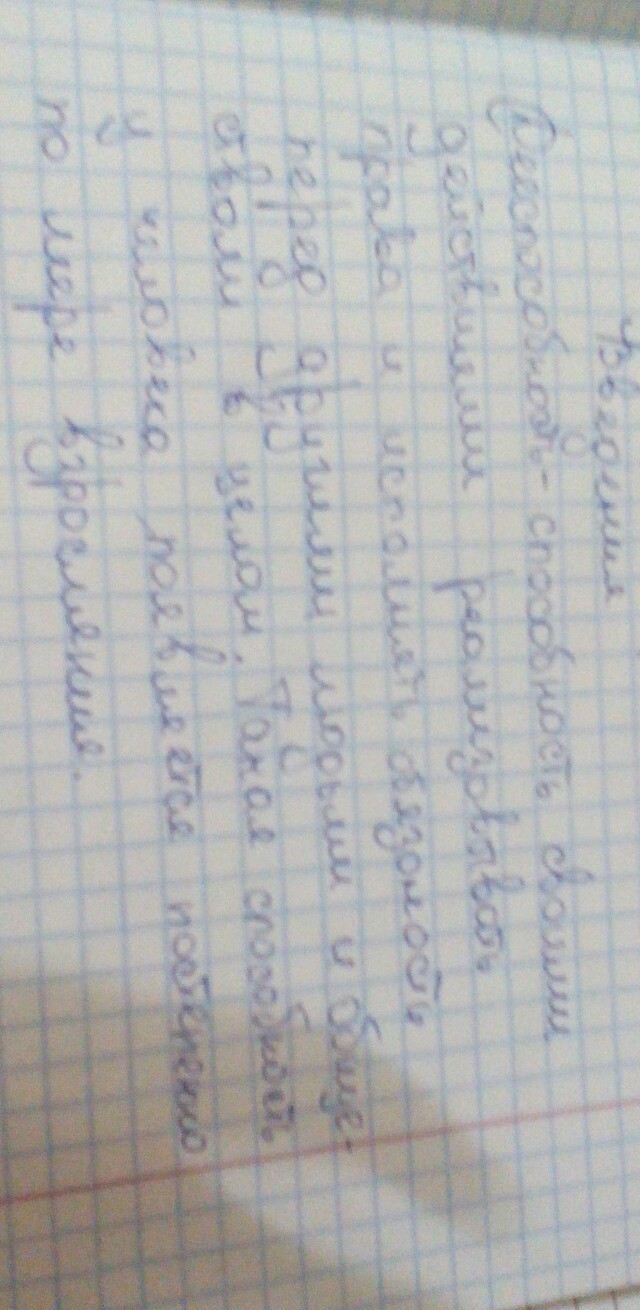 Дееспособность - способность своими
действиями реализовывать
права и исполнять обязаность
перед другими людьми и обще-
ством в целом. Такая способность
у человека появляется постепенно
по мере взросления.